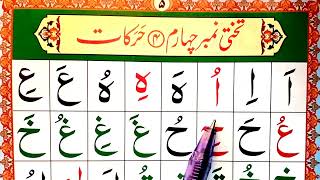 ۵
تختی نمبر چہارم (۴) حَرَکات
اَ اِ اُ هَ هِ هُ عَ عِ
عُ حَ حِ حُ غَ غِ غُ خَ